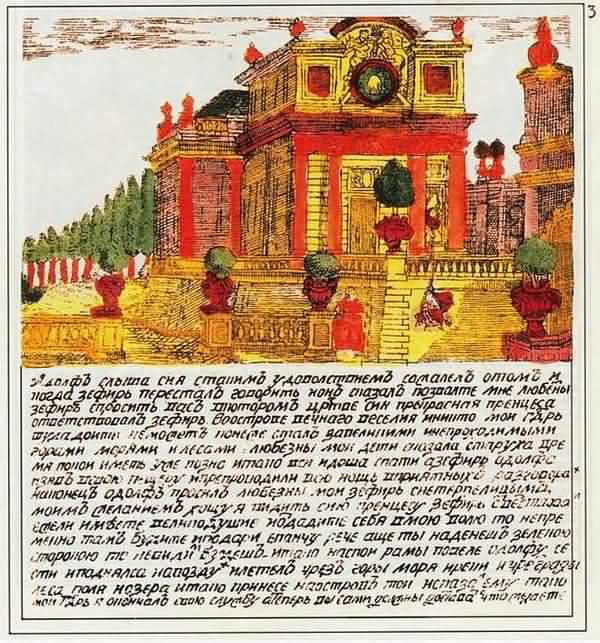 Адолфъ слыша сия стакимъ удоволствиемъ сожалелъ отомъ и
когда зефиръ пересталъ говорить ионъ сказалъ позволте мне любезны
зефиръ спросить васъ вкотаромъ цртве сия прекрасная пренцеса
ответствовалъ зефиръ воострове вечнаго веселия никто мои гдрь
туда доитить неможетъ понеже завеликими инепроходимыми
горами морями илесами любезны мои дети сказала старуха вре
мя покои иметь уже позно итако вси идоша спати азефиръ адолфа
взявъ всвою пещеру ипрепроводили всю нощь вприятныхъ разговорахъ
наконецъ адолфъ просилъ любезны мои зефиръ снетерпелицымъ
моимъ желаниемъ хощу я видить сию пренцесу зефиръ
ежели имеете великодушие ивдадите себя вмою волю то непре
менно тамъ будите иподари епанчу рече аще ты наденешъ зеленою
стороною то невидимъ будешъ итако насвои рамы повеле одолфу се
сти иподнялса навоздухъ илетелъ чрезъ горы моря иреки ичрез
леса поля иозера итако принесе наостровъ тои исказа ему тако
мои гдрь я окончалъ свою службу атеперь вы сами должны что желаете
3